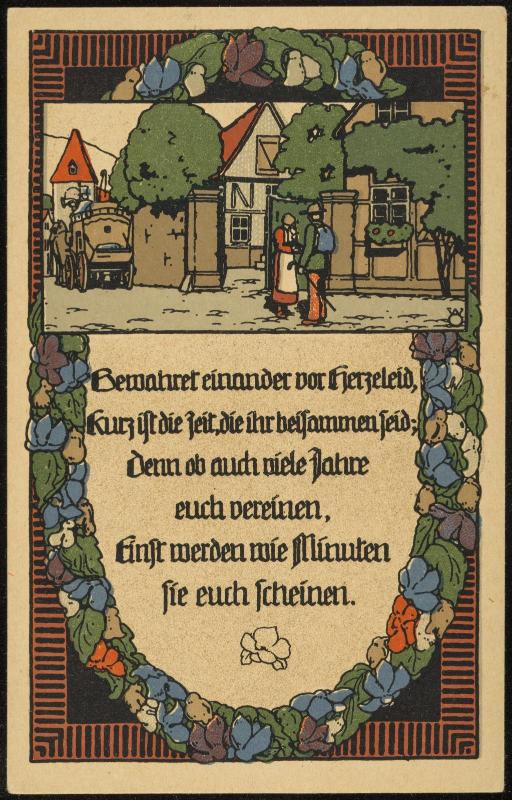 Bewahret einander vor Herzeleid,
Kurz ist die Zeit, die ihr beisammen seid;
Denn ob auch viele Jahre
euch vereinen,
Einst werden wie Minuten
sie euch scheinen.